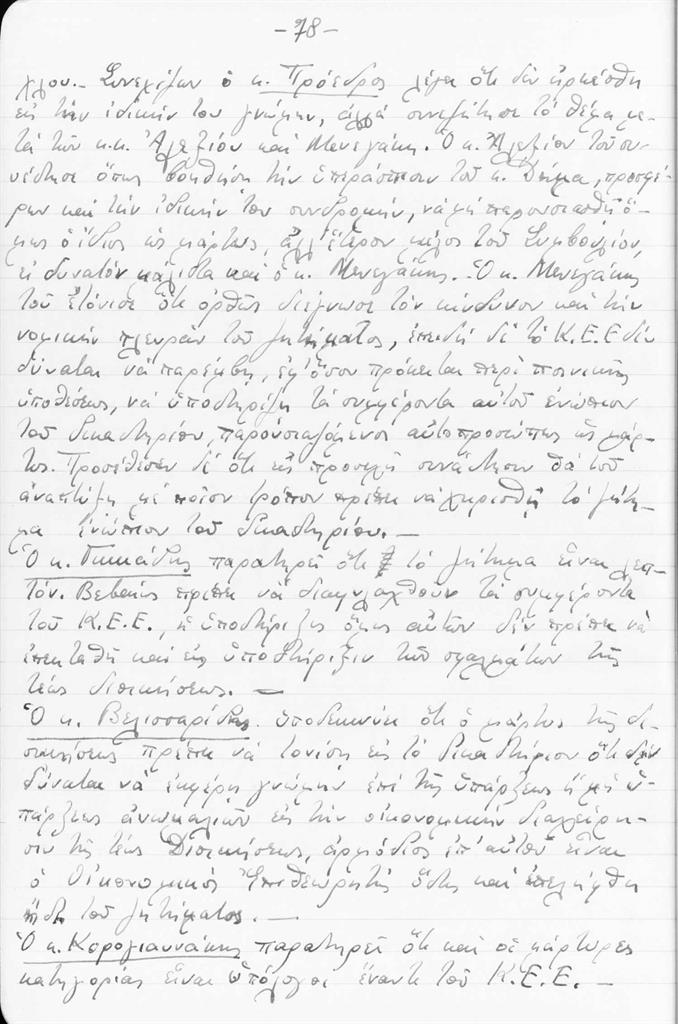 -78-
χλου.- Συνεχίζων ὁ κ. Πρόεδρος λέγει ὅτι δὲν ἠρκέσθη
εἰς τὴν ἰδικήν του γνώμην, ἀλλὰ συνεζήτησε τὸ θέμα με-
τὰ τῶν κ.κ. Ἀλεξίου καὶ Μενεγάκη. Ὁ κ. Ἀλεξίου τοῦ συ-
νέστησε ὅπως βοηθήσῃ τὴν ὑπεράσπισιν τοῦ κ. Δήμα, προσφέ-
ρων καὶ τὴν ἰδικήν του συνδρομήν, νὰ μὴ παρουσιασθῇ ὅ-
μως ὁ ἴδιος ὡς μάρτυς, ἀλλ' ἕτερον μέλος τοῦ Συμβουλίου,
εἰ δυνατόν μάλιστα καὶ ὁ κ. Μενεγάκης. Ὁ κ. Μενεγάκης
τοῦ ἐτόνισε ὅτι ὀρθῶς διέγνωσε τὸν κίνδυνον καὶ τὴν
νομικὴν πλευρὰν τοῦ ζητήματος, ἐπειδὴ δὲ τὸ Κ.Ε.Ε δὲν
δύναται νὰ παρέμβῃ, ἐφ' ὅσον πρόκειται περὶ ποινικῆς
ὑποθέσεως, νὰ ὑποστηρίξῃ τὰ συμφέροντα αὐτοῦ ἐνώπιον
τοῦ δικαστηρίου, παρουσιαζόμενος αὐτοπροσώπως ὡς μάρ-
τυς. Προσέθεσεν δὲ ὅτι εἰς προσεχῆ συνάντησιν θὰ τοῦ
ἀναπτύξῃ μὲ ποῖον τρόπον πρέπει νὰ χειρισθῇ τὸ ζήτη-
μα ἐνώπιον τοῦ δικαστηρίου.-
Ὁ κ. Γικάδης παρατηρεῖ ὅτι τὸ ζήτημα εἶναι λεπ-
τόν. Βεβαίως πρέπει νὰ διαφυλαχθοῦν τὰ συμφέροντα
τοῦ Κ.Ε.Ε., ἡ ὑποστήριξις ὅμως αὐτῶν δὲν πρέπει νὰ
ἐπεκταθῇ καὶ εἰς ὑποστήριξιν τῶν σφαλμάτων τῆς
τέως διοικήσεως.-
Ὁ κ. Βελισσαρίδης ὑποδεικνύει ὅτι ὁ μάρτυς τῆς δι-
οικήσεως πρέπει νὰ τονίσῃ εἰς τὸ δικαστήριον ὅτι δὲν
δύναται νὰ ἐκφέρῃ γνώμην ἐπὶ τῆς ὑπάρξεως ἢ μὴ ὑ-
πάρξεως ἀνωμαλιῶν εἰς τὴν οἰκονομικὴν διαχείρη-
σιν τῆς τέως Διοικήσεως, ἁρμόδιος ἐπ' αὐτοῦ εἶναι
ὁ Οἰκονομικὸς Ἐπιθεωρητὴς ὅστις καὶ ἐπελήφθη
ἤδη τοῦ ζητήματος.-
Ὁ κ. Κορογιαννάκης παρατηρεῖ ὅτι καὶ οἱ μάρτυρες
κατηγορίας εἶναι ὑπόλογοι ἔναντι τοῦ Κ.Ε.Ε.-